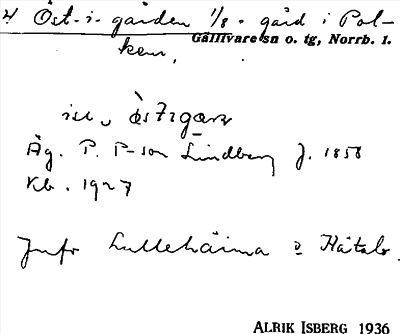 4 Öst-i-gården 1/8 - gård i Pol-
Gällivare sn o. tg, Norrb. l.
ken.
Äg. P. P-son Lindberg f. 1858
Kb. 1927
Jmfr Lullehåima o
ALRIK ISBERG 1936